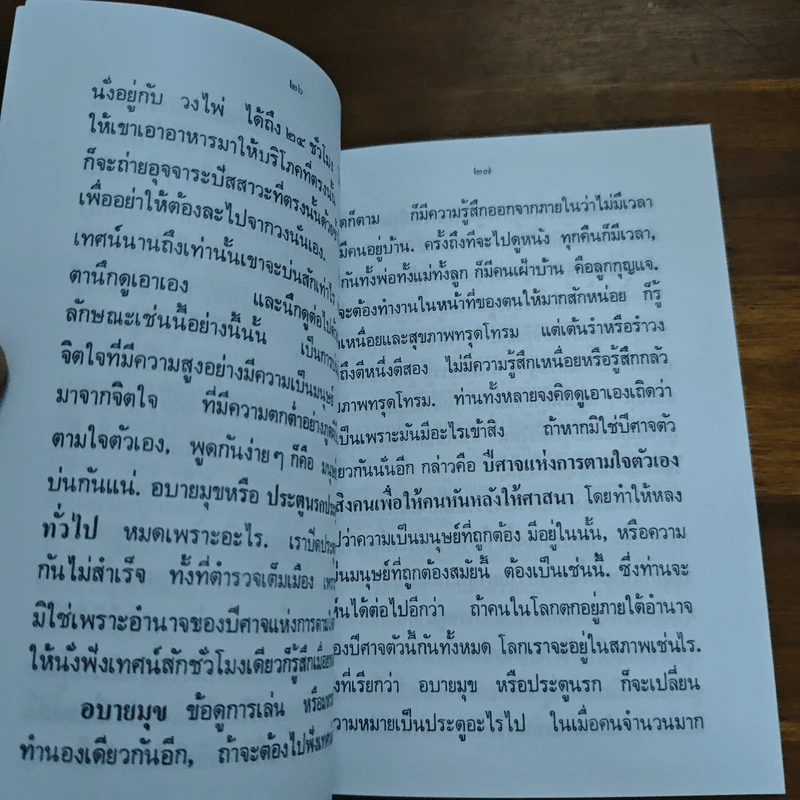 ๒๖
นั่งอยู่กับ วงไพ่ ได้ถึง ๒๔ ชั่วโมง
ให้เขาเอาอาหารมาให้บริโภคที่ตรงนั้น
ก็จะถ่ายอุจจาระปัสสาวะที่ตรงนั้นด้วย
เพื่ออย่าให้ต้องละไปจากวงนั่นเอง.
เทศน์นานถึงเท่านั้นเขาจะบ่นสักเท่าไร
ตานึกดูเอาเอง และนึกดูต่อไป
ลักษณะเช่นนี้อย่างนี้นั้น เป็นการ
จิตใจที่มีความสูงอย่างมีความเป็นมนุษย์
มาจากจิตใจ ที่มีความตกต่ำอย่าง
ตามใจตัวเอง, พูดกันง่ายๆ ก็คือ
บ่นกันแน่. อบายมุขหรือ ประตูนรก
ทั่วไป หมดเพราะอะไร. เราปิด
กันไม่สำเร็จ ทั้งที่ตำรวจเต็มเมือง
มิใช่เพราะอำนาจของปีศาจแห่งการตามใจ
ให้นั่งฟังเทศน์สักชั่วโมงเดียวก็รู้สึกเมื่อย
อบายมุข ข้อดูการเล่น
ทำนองเดียวกันอีก, ถ้าจะต้องไปฟังเทศน์
๒๗
ดก็ตาม ก็มีความรู้สึกออกจากภายในว่าไม่มีเวลา
มีคนอยู่บ้าน. ครั้งถึงที่จะไปดูหนัง ทุกคืนก็มีเวลา,
กันทั้งพ่อทั้งแม่ทั้งลูก ก็มีคนเฝ้าบ้าน คือลูกกุญแจ.
จะต้องทำงานในหน้าที่ของตนให้มากสักหน่อย ก็รู้
เหนื่อยและสุขภาพทรุดโทรม แต่เต้นรำหรือรำวง
ถึงตีหนึ่งตีสอง ไม่มีความรู้สึกเหนื่อยหรือรู้สึกกลัว
ภาพทรุดโทรม. ท่านทั้งหลายจงคิดดูเอาเองเถิดว่า
เป็นเพราะมันมีอะไรเข้าสิง ถ้าหากมิใช่ปีศาจตัว
ยวกันนั่นอีก กล่าวคือ ปีศาจแห่งการตามใจตัวเอง
สิงคนเพื่อให้คนหันหลังให้ศาสนา โดยทำให้หลง
ปว่าความเป็นมนุษย์ที่ถูกต้อง มีอยู่ในนั้น, หรือความ
ป็นมนุษย์ที่ถูกต้องสมัยนี้ ต้องเป็นเช่นนี้. ซึ่งท่านจะ
ห็นได้ต่อไปอีกว่า ถ้าคนในโลกตกอยู่ภายใต้อำนาจ
องปีศาจตัวนี้กันทั้งหมด โลกเราจะอยู่ในสภาพเช่นไร.
งที่เรียกว่า อบายมุข หรือประตูนรก ก็จะเปลี่ยน
วามหมายเป็นประตูอะไรไป ในเมื่อคนจำนวนมาก